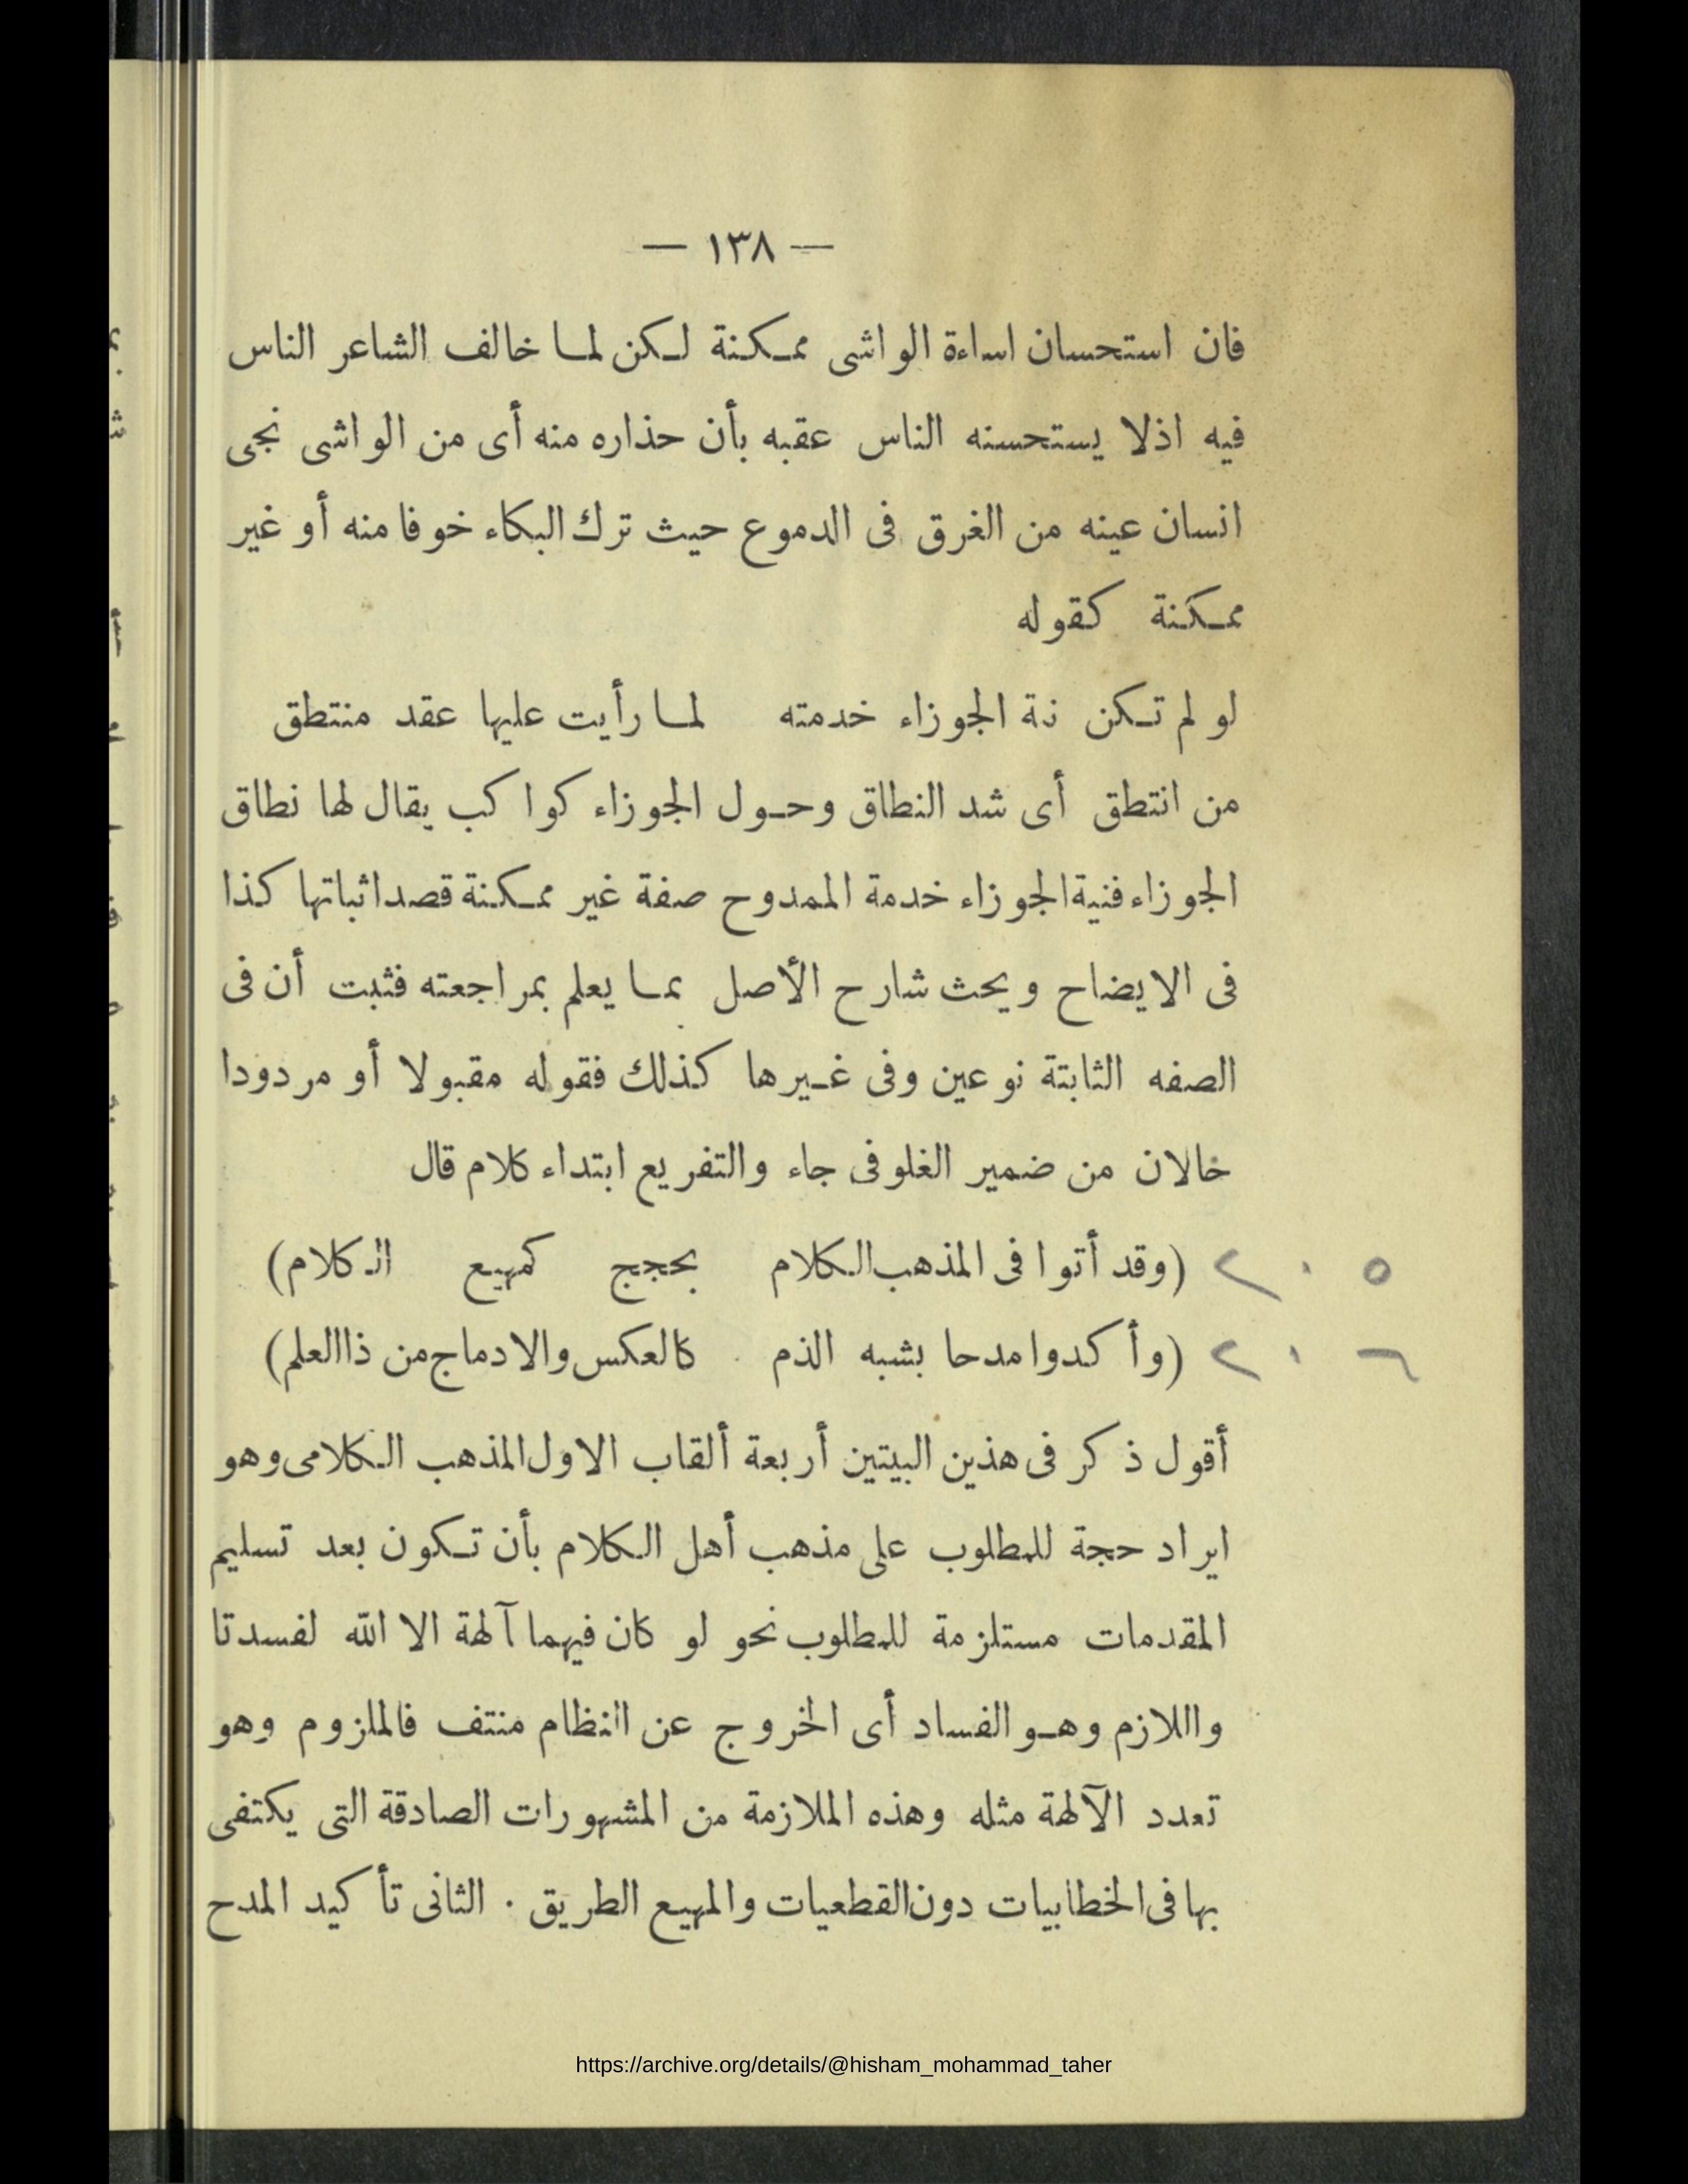 — ١٣٨ —
فان استحسان اساءة الواشى ممكنة لكن لما خالف الشاعر الناس
فيه اذلا يستحسنه الناس عقبه بأن حذاره منه أى من الواشى نجى
انسان عينه من الغرق فى الدموع حيث ترك البكاء خوفا منه أو غير
ممكنة كقوله
لو لم تكن نة الجوزاء خدمته لما رأيت عليها عقد منتطق
من انتطق أى شد النطاق وحول الجوزاء كواكب يقال لها نطاق
الجوزاء فنية الجوزاء خدمة الممدوح صفة غير ممكنة قصد اثباتها كذا
فى الايضاح وبحث شارح الأصل بما يعلم بمراجعته فثبت أن فى
الصفه الثابتة نوعين وفى غيرها كذلك فقوله مقبولا أو مردودا
خالان من ضمير الغلو فى جاء والتفريع ابتداء كلام قال
٢٠٥ (وقد أتوا فى المذهب الكلام بحجج كمهيع الكلام)
٢٠٦ (وأكدوا مدحا بشبه الذم كالعكس والادماج من ذا العلم)
أقول ذكر فى هذين البيتين أربعة ألقاب الاول المذهب الكلامى وهو
ايراد حجة للمطلوب على مذهب أهل الكلام بأن تكون بعد تسليم
المقدمات مستلزمة للمطلوب نحو لو كان فيهما آلهة الا الله لفسدتا
واللازم وهو الفساد أى الخروج عن النظام منتف فالملزوم وهو
تعدد الآلهة مثله وهذه الملازمة من المشهورات الصادقة التى يكتفى
بها فى الخطابيات دون القطعيات والمهيع الطريق . الثانى تأكيد المدح
https://archive.org/details/@hisham_mohammad_taher